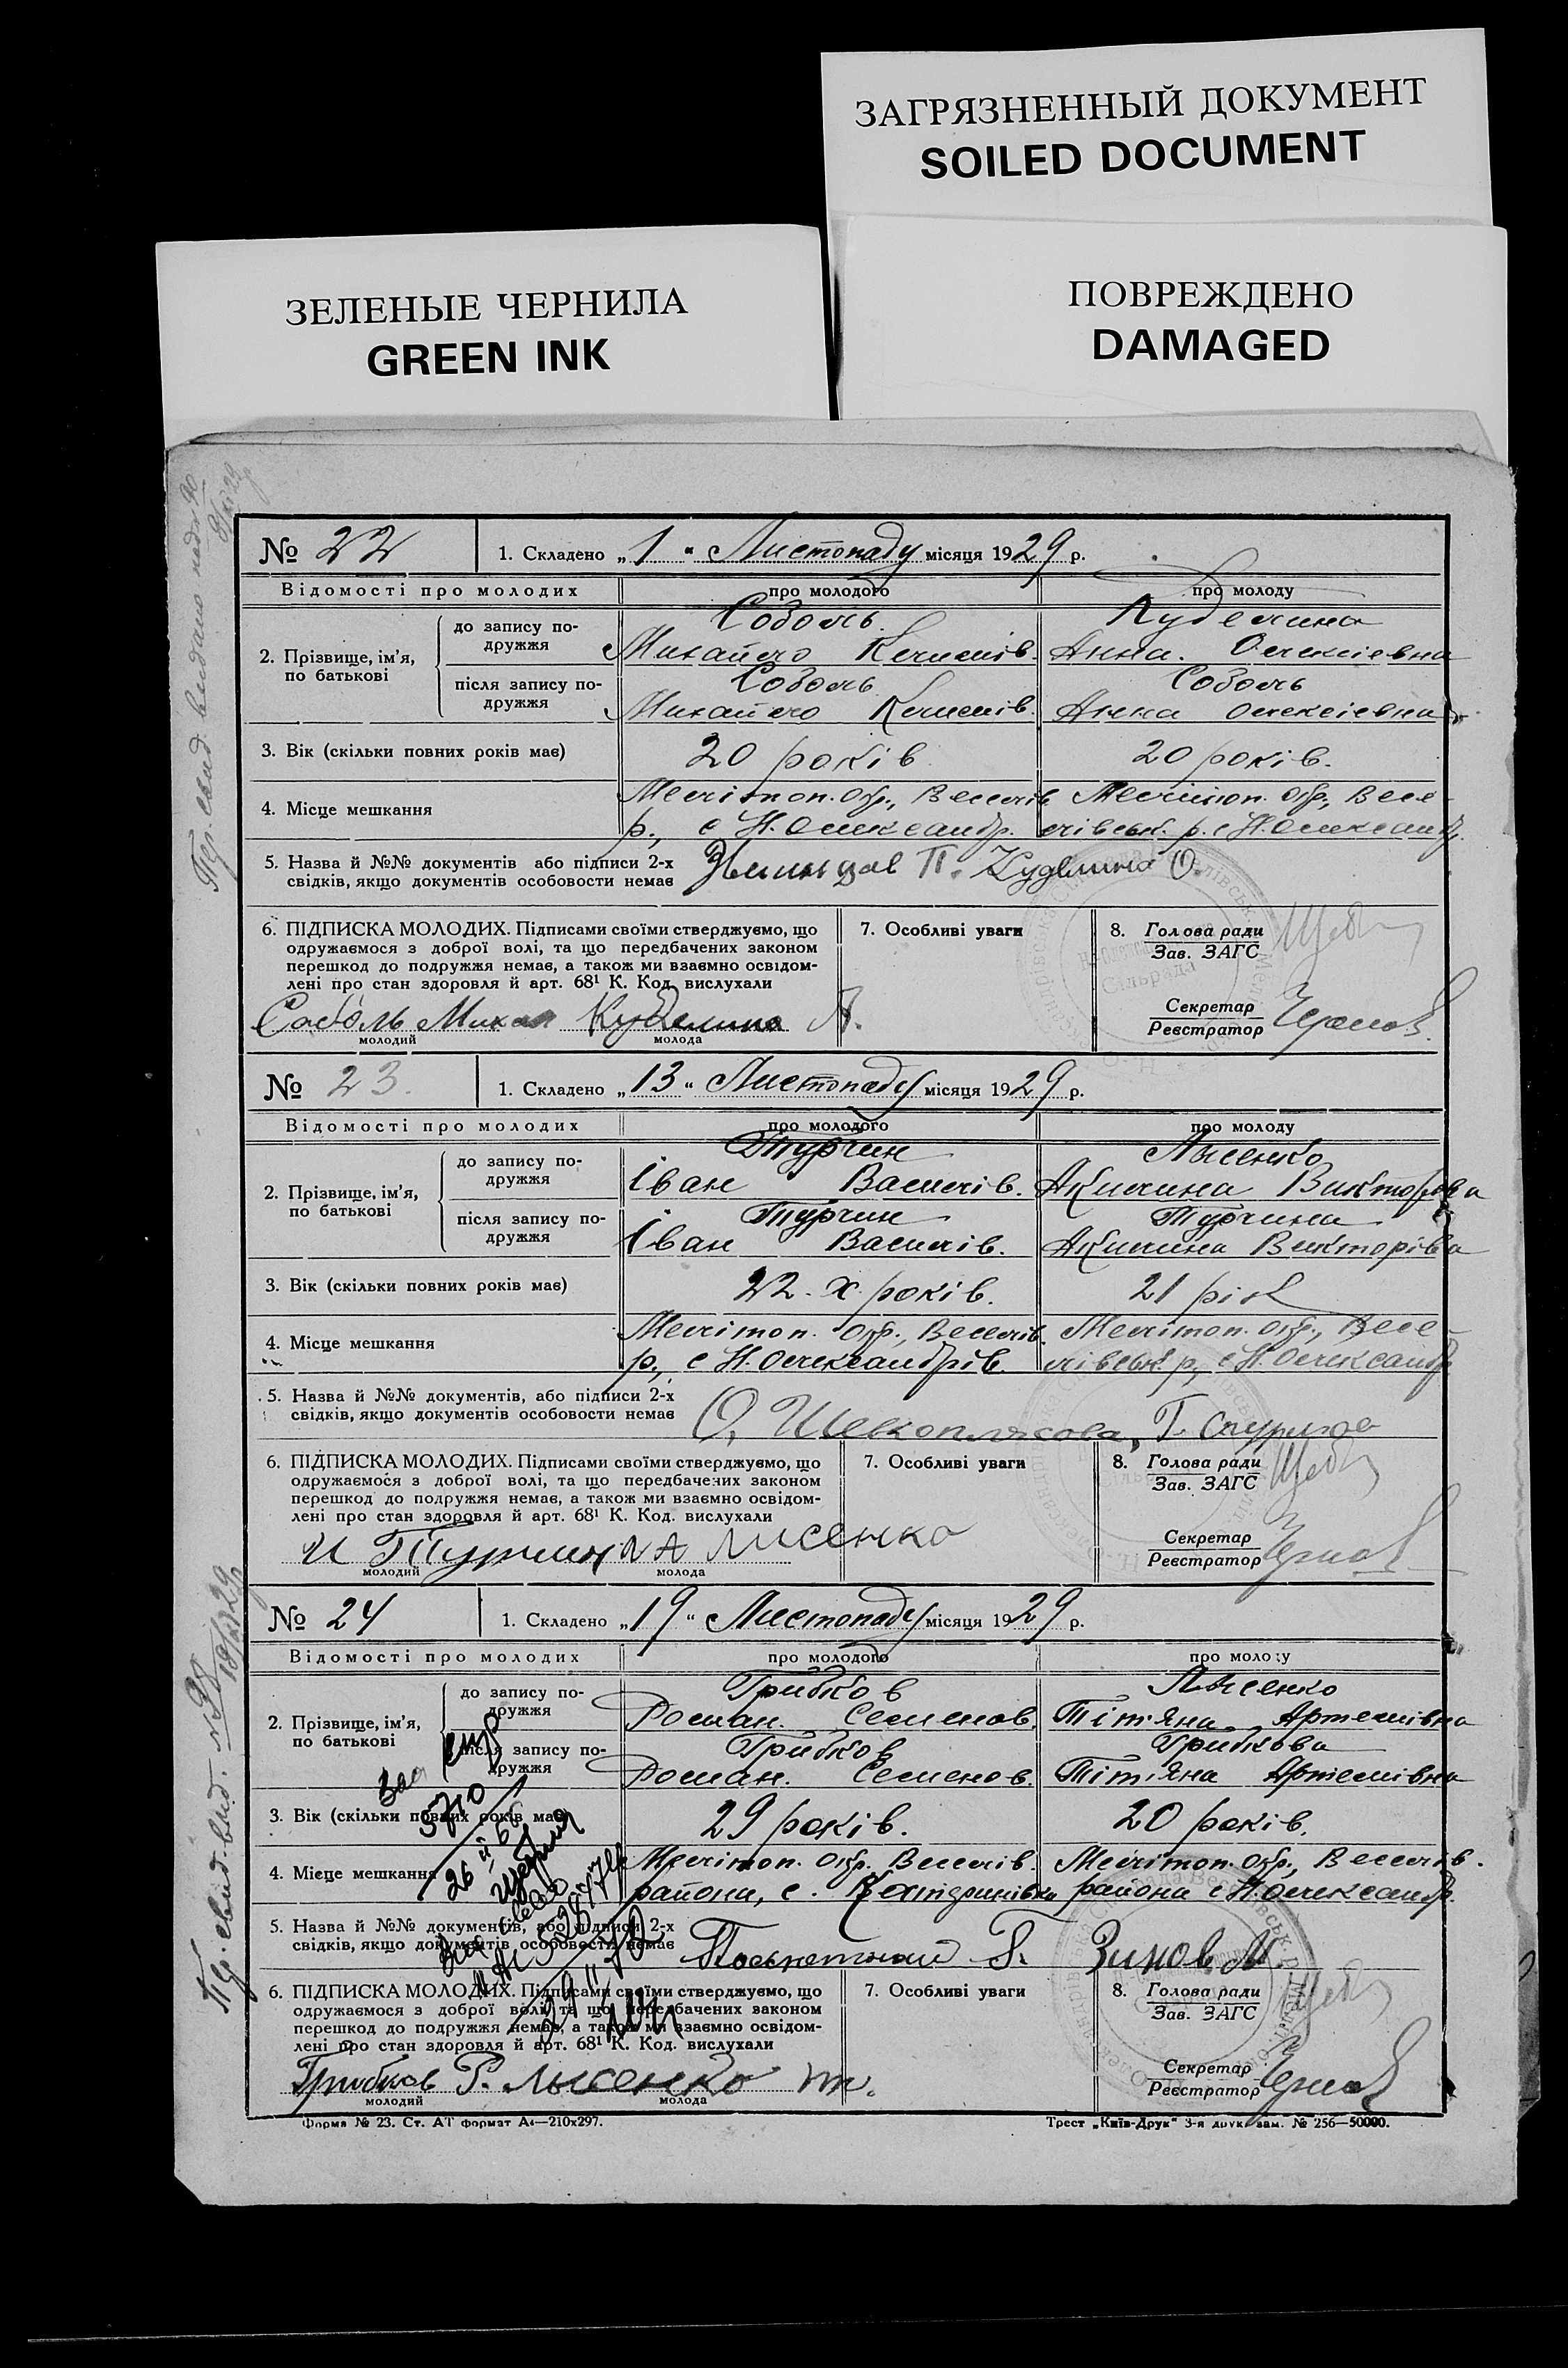 ЗАГРЯЗНЕННЫЙ ДОКУМЕНТ
SOILED DOCUMENT
ЗЕЛЕНЫЕ ЧЕРНИЛА
GREEN INK
ПОВРЕЖДЕНО
DAMAGED
№ 22 1. Складено „1“ Листопаду місяця 1929 р.
Відомості про молодих про молодого про молоду
2. Прізвище, ім'я, по батькові
до запису по-дружжя Соболь Кубелина
Михайло Климів. Анна. Олексіевна
після запису по-дружжя Соболь Соболь
Михайло Климів. Анна Олексіевна
3. Вік (скільки повних років має) 20 років 20 років.
4. Місце мешкання Мелітоп. Окр., Веселів. Мелітоп. Окр., Весе-
р., с Н. Олександр. лівськ. р. с Н. Олександр.
5. Назва й №№ документів або підписи 2-х
свідків, якщо документів особовости немає П. Куделина О.
6. ПІДПИСКА МОЛОДИХ. Підписами своїми стверджуємо, що
одружаємося з доброї волі, та що передбачених законом
перешкод до подружжя немає, а також ми взаємно освідом-
лені про стан здоровля й арт. 68¹ К. Код. вислухали
7. Особливі уваги
8. Голова ради
Зав. ЗАГС
Секретар
Реєстратор
Соболь Михал Кубелина А.
молодий молода
№ 23. 1. Складено „13“ Листопаду місяця 1929 р.
Відомості про молодих про молодого про молоду
2. Прізвище, ім'я, по батькові
до запису по-дружжя Турчин Лысенко
Іван Василів. Акилина Викторовна
після запису по-дружжя Турчин Турчина
Іван Василів. Акилина Викторівна
3. Вік (скільки повних років має) 22-х років. 21 рік
4. Місце мешкання Мелітоп. Окр., Веселів. Мелітоп. Окр., Весе-
р., с Н. Олександрів. лівськ. р., с Н. Олександр
5. Назва й №№ документів, або підписи 2-х
свідків, якщо документів особовости немає О, Щекоплясова, Г.
6. ПІДПИСКА МОЛОДИХ. Підписами своїми стверджуємо, що
одружаємося з доброї волі, та що передбачених законом
перешкод до подружжя немає, а також ми взаємно освідом-
лені про стан здоровля й арт. 68¹ К. Код. вислухали
7. Особливі уваги
8. Голова ради
Зав. ЗАГС
Секретар
Реєстратор
И Турчин А Лисенко
молодий молода
№ 24 1. Складено „19“ Листопаду місяця 1929 р.
Відомості про молодих про молодого про молоду
2. Прізвище, ім'я, по батькові
до запису по-дружжя Грибков Лысенко
Роман. Семенов. Тітяна Артемівна
після запису по-дружжя Грибков Грибкова
Роман. Семенов. Тітяна Артемівна
3. Вік (скільки повних років має) 29 років. 20 років.
4. Місце мешкання Мелітоп. Окр. Веселів. Мелітоп. Окр., Веселів.
района, с. Катіринівка района с Н. Олександр.
5. Назва й №№ документів, або підписи 2-х
свідків, якщо документів особовости немає Г. Зинов М
6. ПІДПИСКА МОЛОДИХ. Підписами своїми стверджуємо, що
одружаємося з доброї волі, та що передбачених законом
перешкод до подружжя немає, а також ми взаємно освідом-
лені про стан здоровля й арт. 68¹ К. Код. вислухали
7. Особливі уваги
8. Голова ради
Зав. ЗАГС
Секретар
Реєстратор
Грибков Р. Лысенко т.
молодий молода
Форма № 23. Ст. АТ формат А4—210х297.
Трест „Київ-Друк“ 3-я друк. зам. № 256—50000.